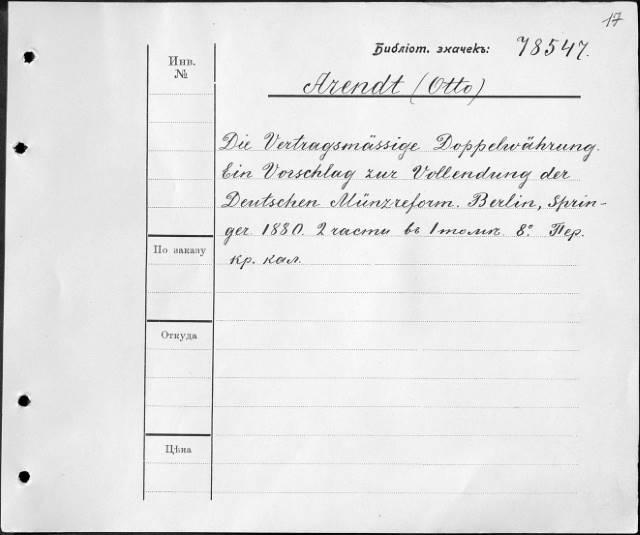 17
Библіот. значекъ: 78547.
Инв.
№
Arendt (Otto)
Die Vertragsmässige Doppelwährung.
Ein Vorschlag zur Vollendung der
Deutschen Münzreform. Berlin, Sprin-
ger 1880. 2 части въ 1 томѣ. 8º. Пер.
кр. кал.
По заказу
Откуда
Цѣна